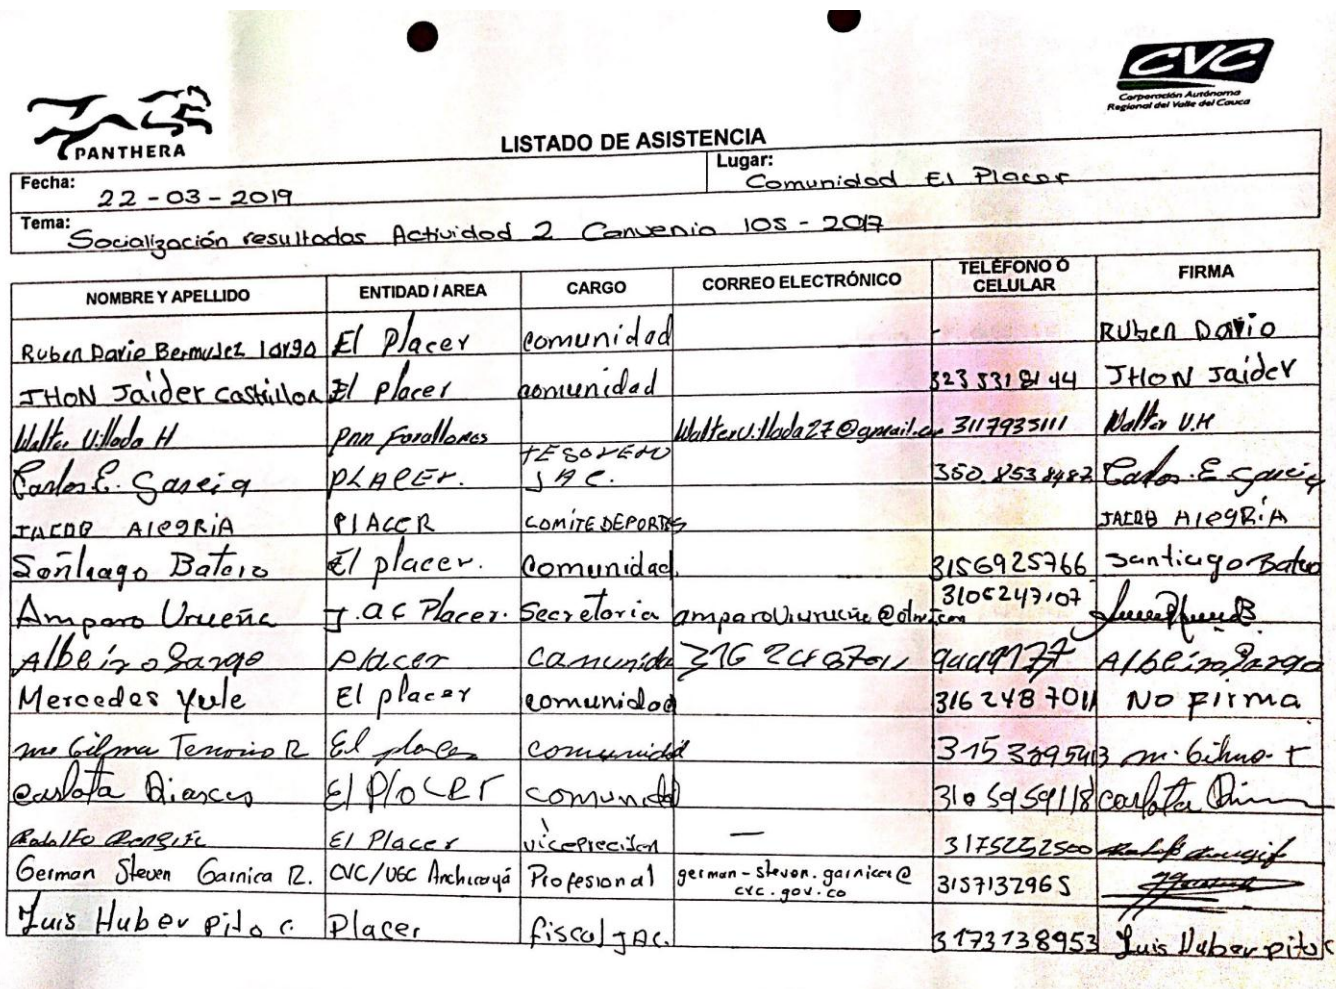 PANTHERA
CVC
Corporación Autónoma
Regional del Valle del Cauca
LISTADO DE ASISTENCIA
Fecha: 22-03-2019 Lugar: Comunidad El Placer
Tema: Socialización resultados Actividad 2 Convenio 105-2017
NOMBRE Y APELLIDO ENTIDAD / AREA CARGO CORREO ELECTRÓNICO TELÉFONO Ó CELULAR FIRMA
Ruben Dario Bermudez largo El Placer comunidad - Ruben Dario
JHON Jaider Castrillon El placer comunidad 323 531 81 44 JHON Jaider
Walter Villada H pnn Farallones 3117935111 Walter V.H
Carlos E. Garcia PLACER. TESORERO JAC. 350 853 8487 Carlos E Garcia
JACOB AlegRiA PlACER COMITE DEPORTES JACOB AlegRiA
Santiago Batero El placer. Comunidad. 3156925766 Santiago Batero
Amparo Urueña J.ac Placer. Secretaria 3106247107
Albeiro Largo placer Albeiro Largo
Mercedes Yule El placer comunidad 316 248 7011 No firma
Gilma Tenorio R El placer comunidad
Carlota El Placer comunidad 3105959118 Carlota
Rodolfo Rengifo El Placer
German Steven Garnica R. CVC/UGC Anchicayá Profesional german-steven.garnica@cvc.gov.co 3157132965
Luis Huber pito c. Placer fiscal JAC. 3173138953 Luis Huber pito c